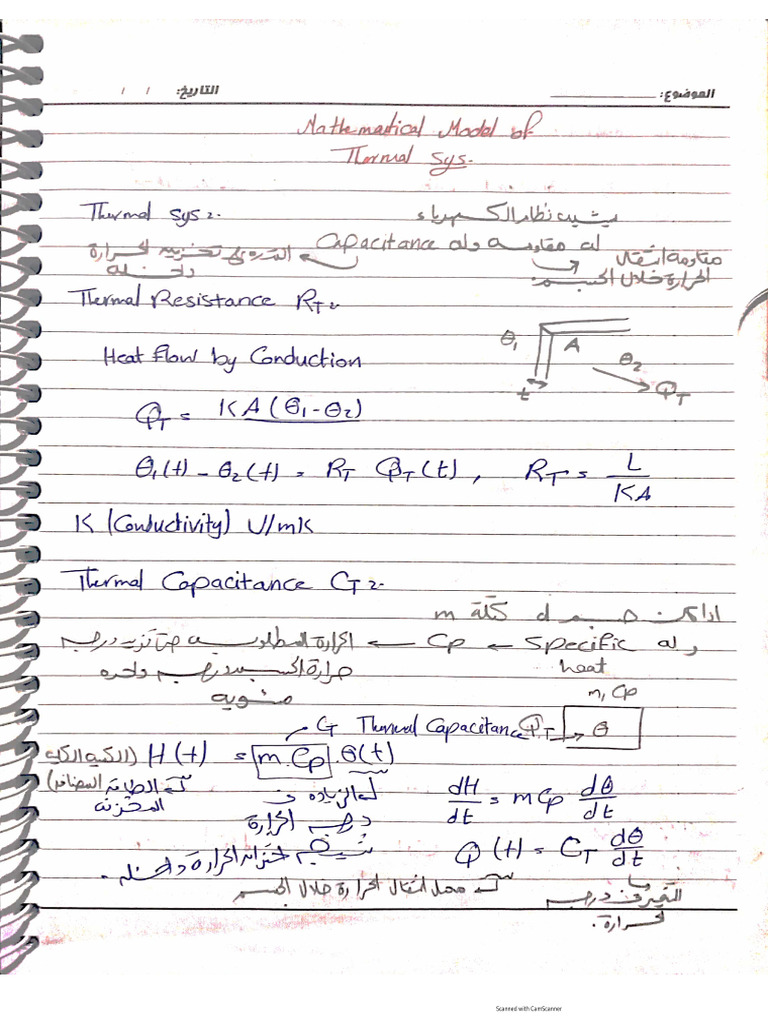 الموضوع: التاريخ: / /
Mathematical Model of
Thermal Sys.
Thermal sys:- يشبه نظام الكهرباء
له مقاومة وله Capacitance
القدرة على تخزين الحرارة داخله
مقاومة انتقال الحرارة خلال الجسم.
Thermal Resistance RT:-
Heat flow by Conduction
θ1 A θ2 t QT
QT = KA(θ1-θ2)
θ1(t) - θ2(t) = RT QT(t), RT = L/KA
K (Conductivity) U/mK
Thermal Capacitance CT:-
اذا كان جسم d كتلة m
وله specific heat ← Cp ← الحرارة المطلوبة حتى تزيد درجة
حرارة الجسم درجة واحده
مئوية
m, Cp
CT Thermal Capacitance QT → θ
H(t) = m.Cp.θ(t)
الطاقة المخزنة
الزياده في
درجة الحرارة
dH/dt = mCp dθ/dt
Q(t) = CT dθ/dt
الحرارة داخله.
معدل انتقال الحرارة خلال الجسم
التغير في درجة
الحرارة.
Scanned with CamScanner